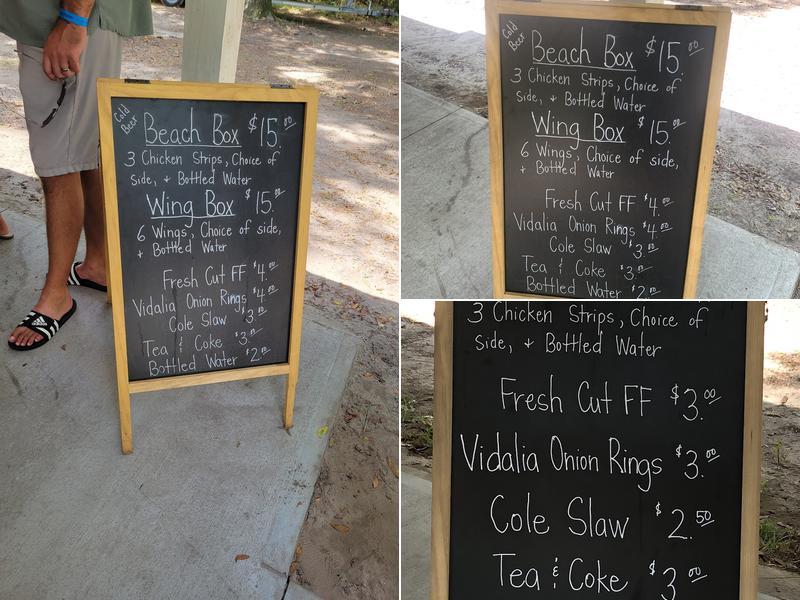 Cold
Beer
Beach Box $15.00
3 Chicken Strips, Choice of
side, + Bottled Water
Wing Box $15.00
6 Wings, Choice of side,
+ Bottled Water
Fresh Cut FF $4.00
Vidalia Onion Rings $4.00
Cole Slaw $3.00
Tea & Coke $3.00
Bottled Water $2.00
adidas
Cold
Beer
Beach Box $15.00
3 Chicken Strips, Choice of
side, + Bottled Water
Wing Box $15.00
6 Wings, Choice of side,
+ Bottled Water
Fresh Cut FF $4.00
Vidalia Onion Rings $4.00
Cole Slaw $3.00
Tea & Coke $3.00
Bottled Water $2.00
3 Chicken Strips, Choice of
side, + Bottled Water
Fresh Cut FF $3.00
Vidalia Onion Rings $3.00
Cole Slaw $2.50
Tea & Coke $3.00